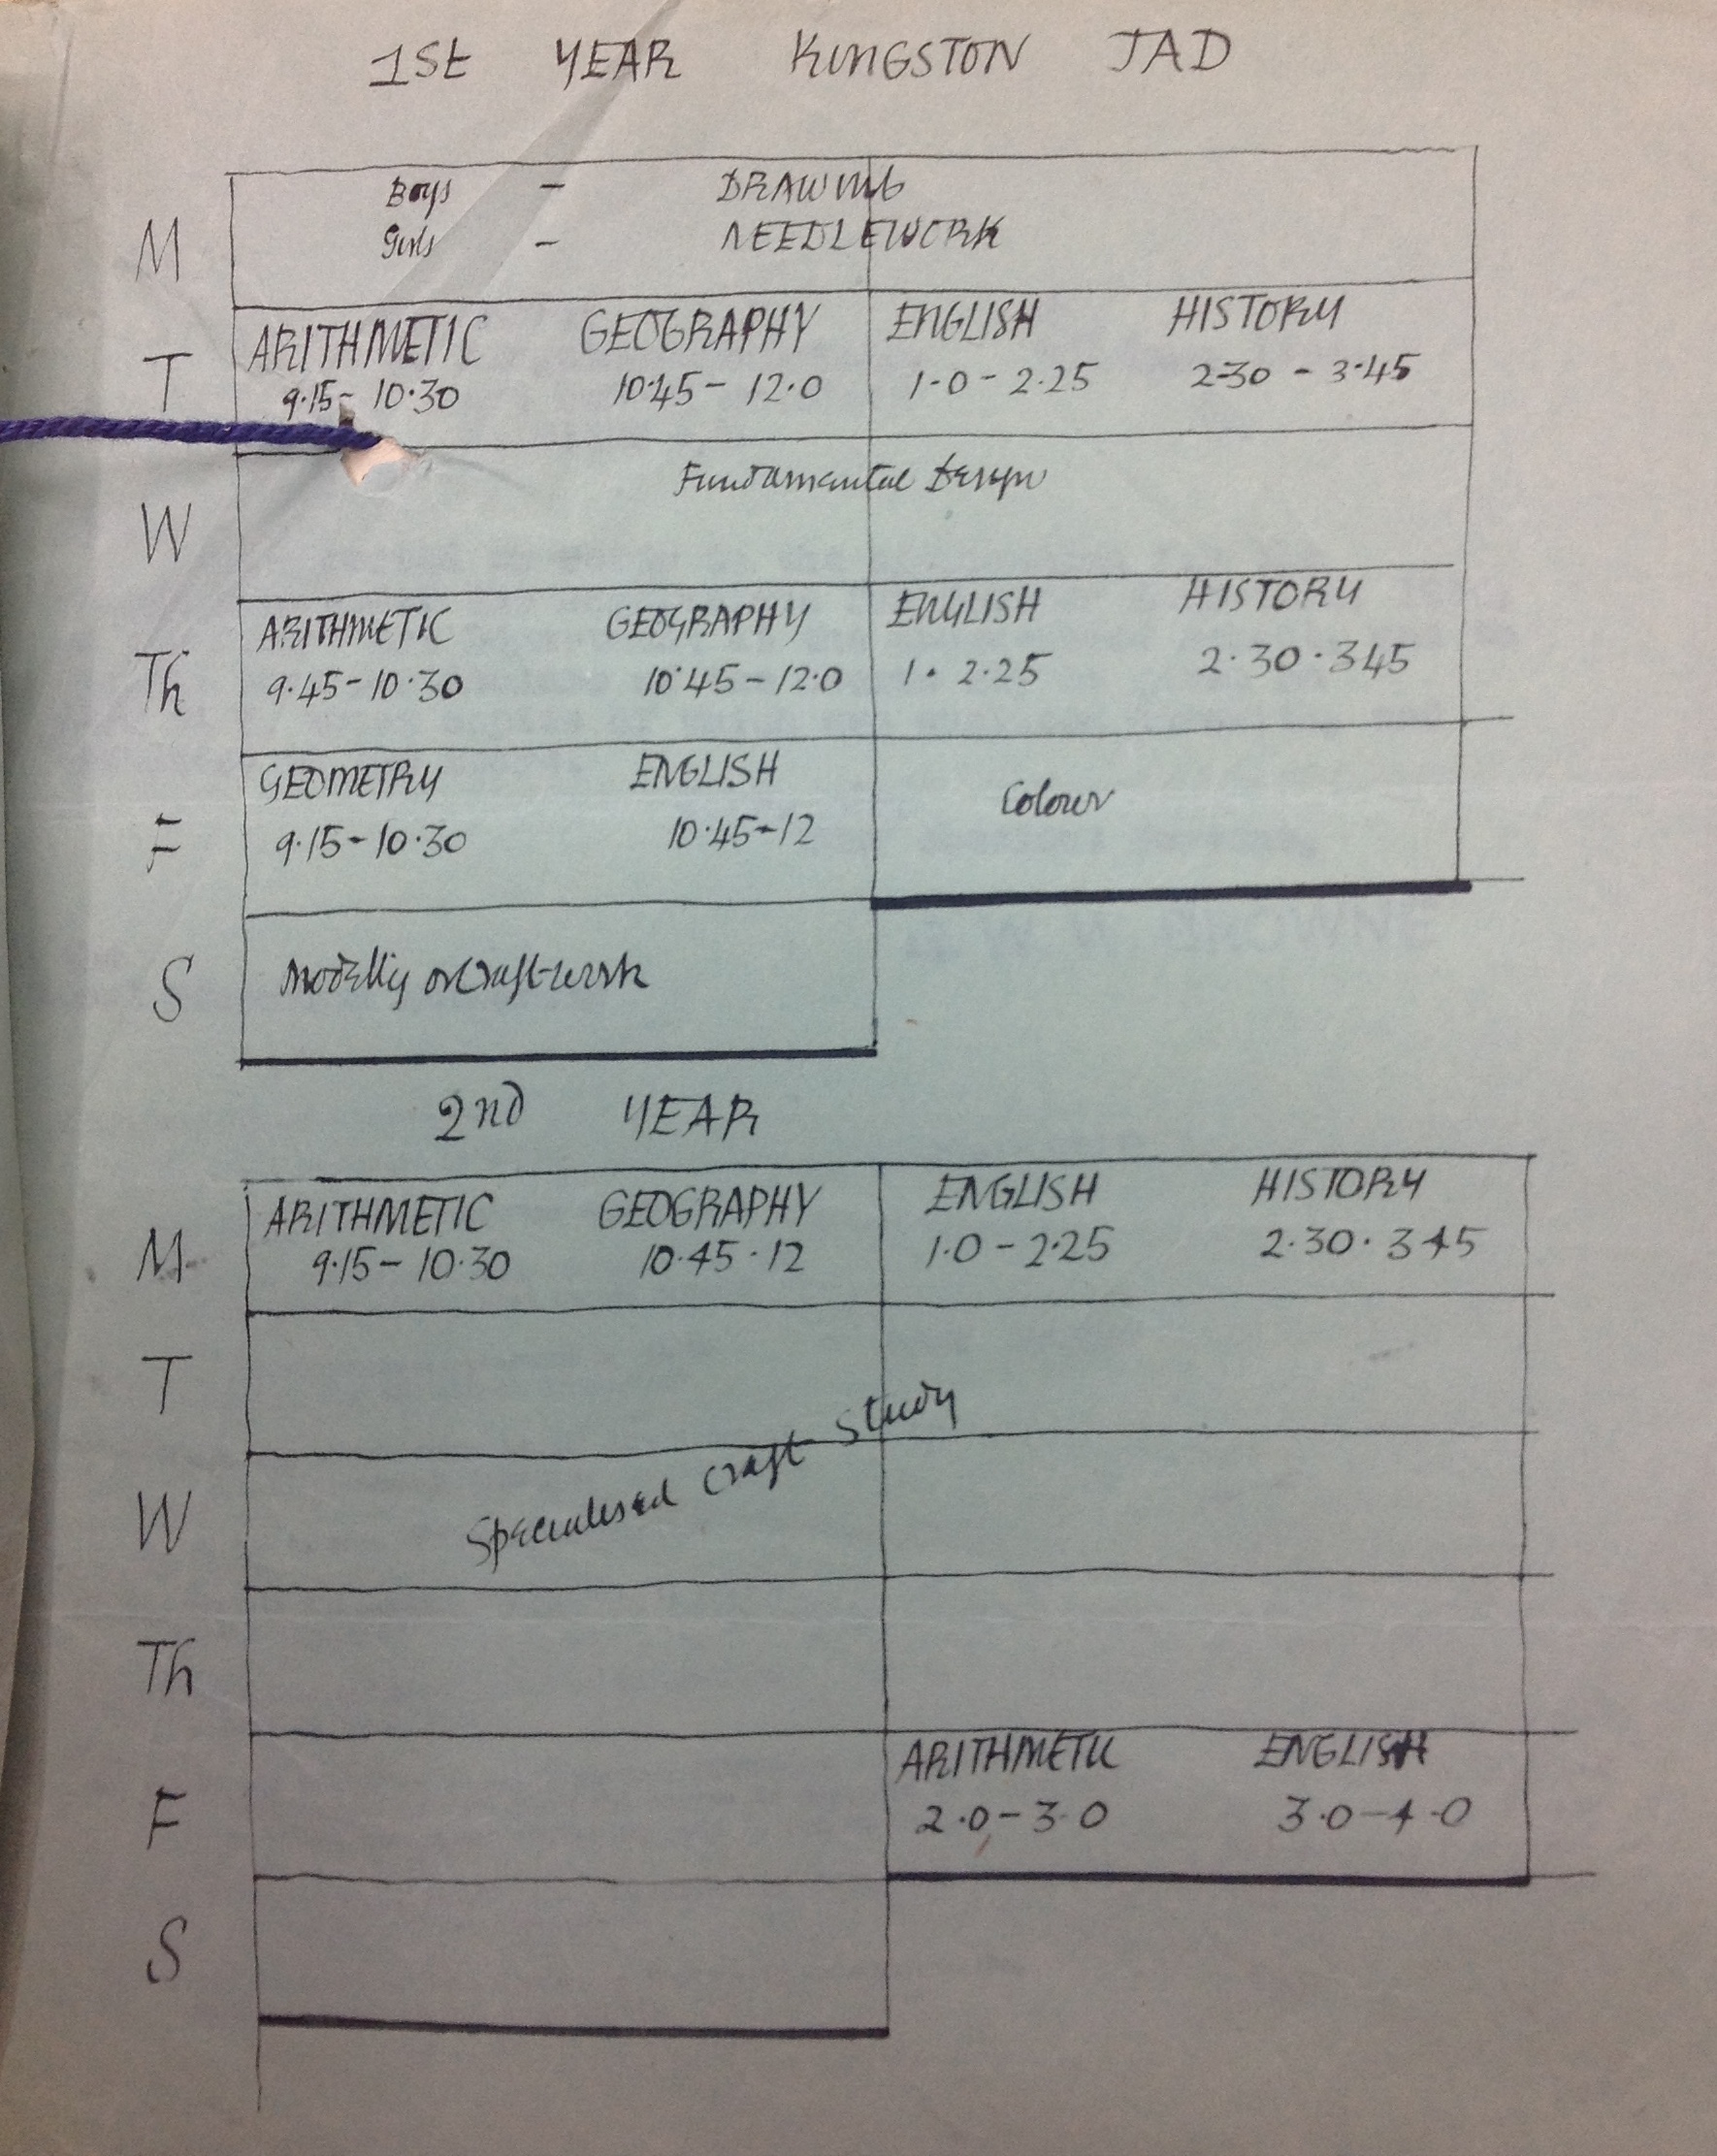 1St YEAR KINGSTON JAD
Boys - DRAWING
Girls - NEEDLEWORK
M
ARITHMETIC GEOGRAPHY ENGLISH HISTORY
T
9.15- 10.30 10.45- 12.0 1.0 - 2.25 2.30 - 3.45
Fundamental Design
W
ARITHMETIC GEOGRAPHY ENGLISH HISTORY
Th
9.45-10.30 10.45-12.0 1. 2.25 2.30.345
GEOMETRY ENGLISH Colour
F
9.15-10.30 10.45-12
S Modelling or Craft-work
2nd YEAR
ARITHMETIC GEOGRAPHY ENGLISH HISTORY
M 9.15- 10.30 10.45.12 1.0 - 2.25 2.30.345
T
Specialised Craft Study
W
Th
ARITHMETIC ENGLISH
F 2.0-3.0 3.0-4.0
S